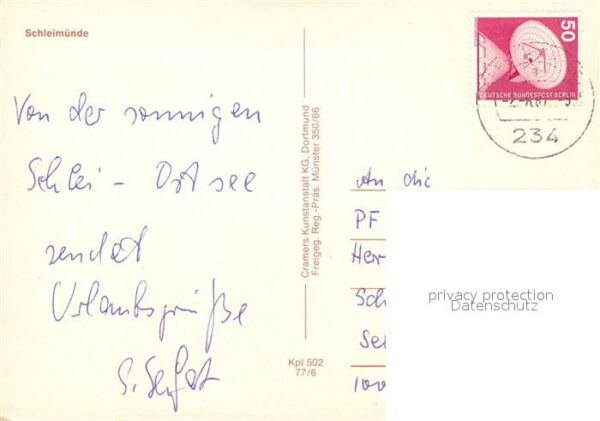 Schleimünde
50
DEUTSCHE BUNDESPOST BERLIN
234
Von der sonnigen
Schlei - Ostsee
sendet
Urlaubsgrüße
Cramers Kunstanstalt KG, Dortmund
Freigeg. Reg.-Präs. Münster 350/66
Kpl 502
77/6
An die
PF
Herr
Sch
Se
1000
privacy protection
Datenschutz